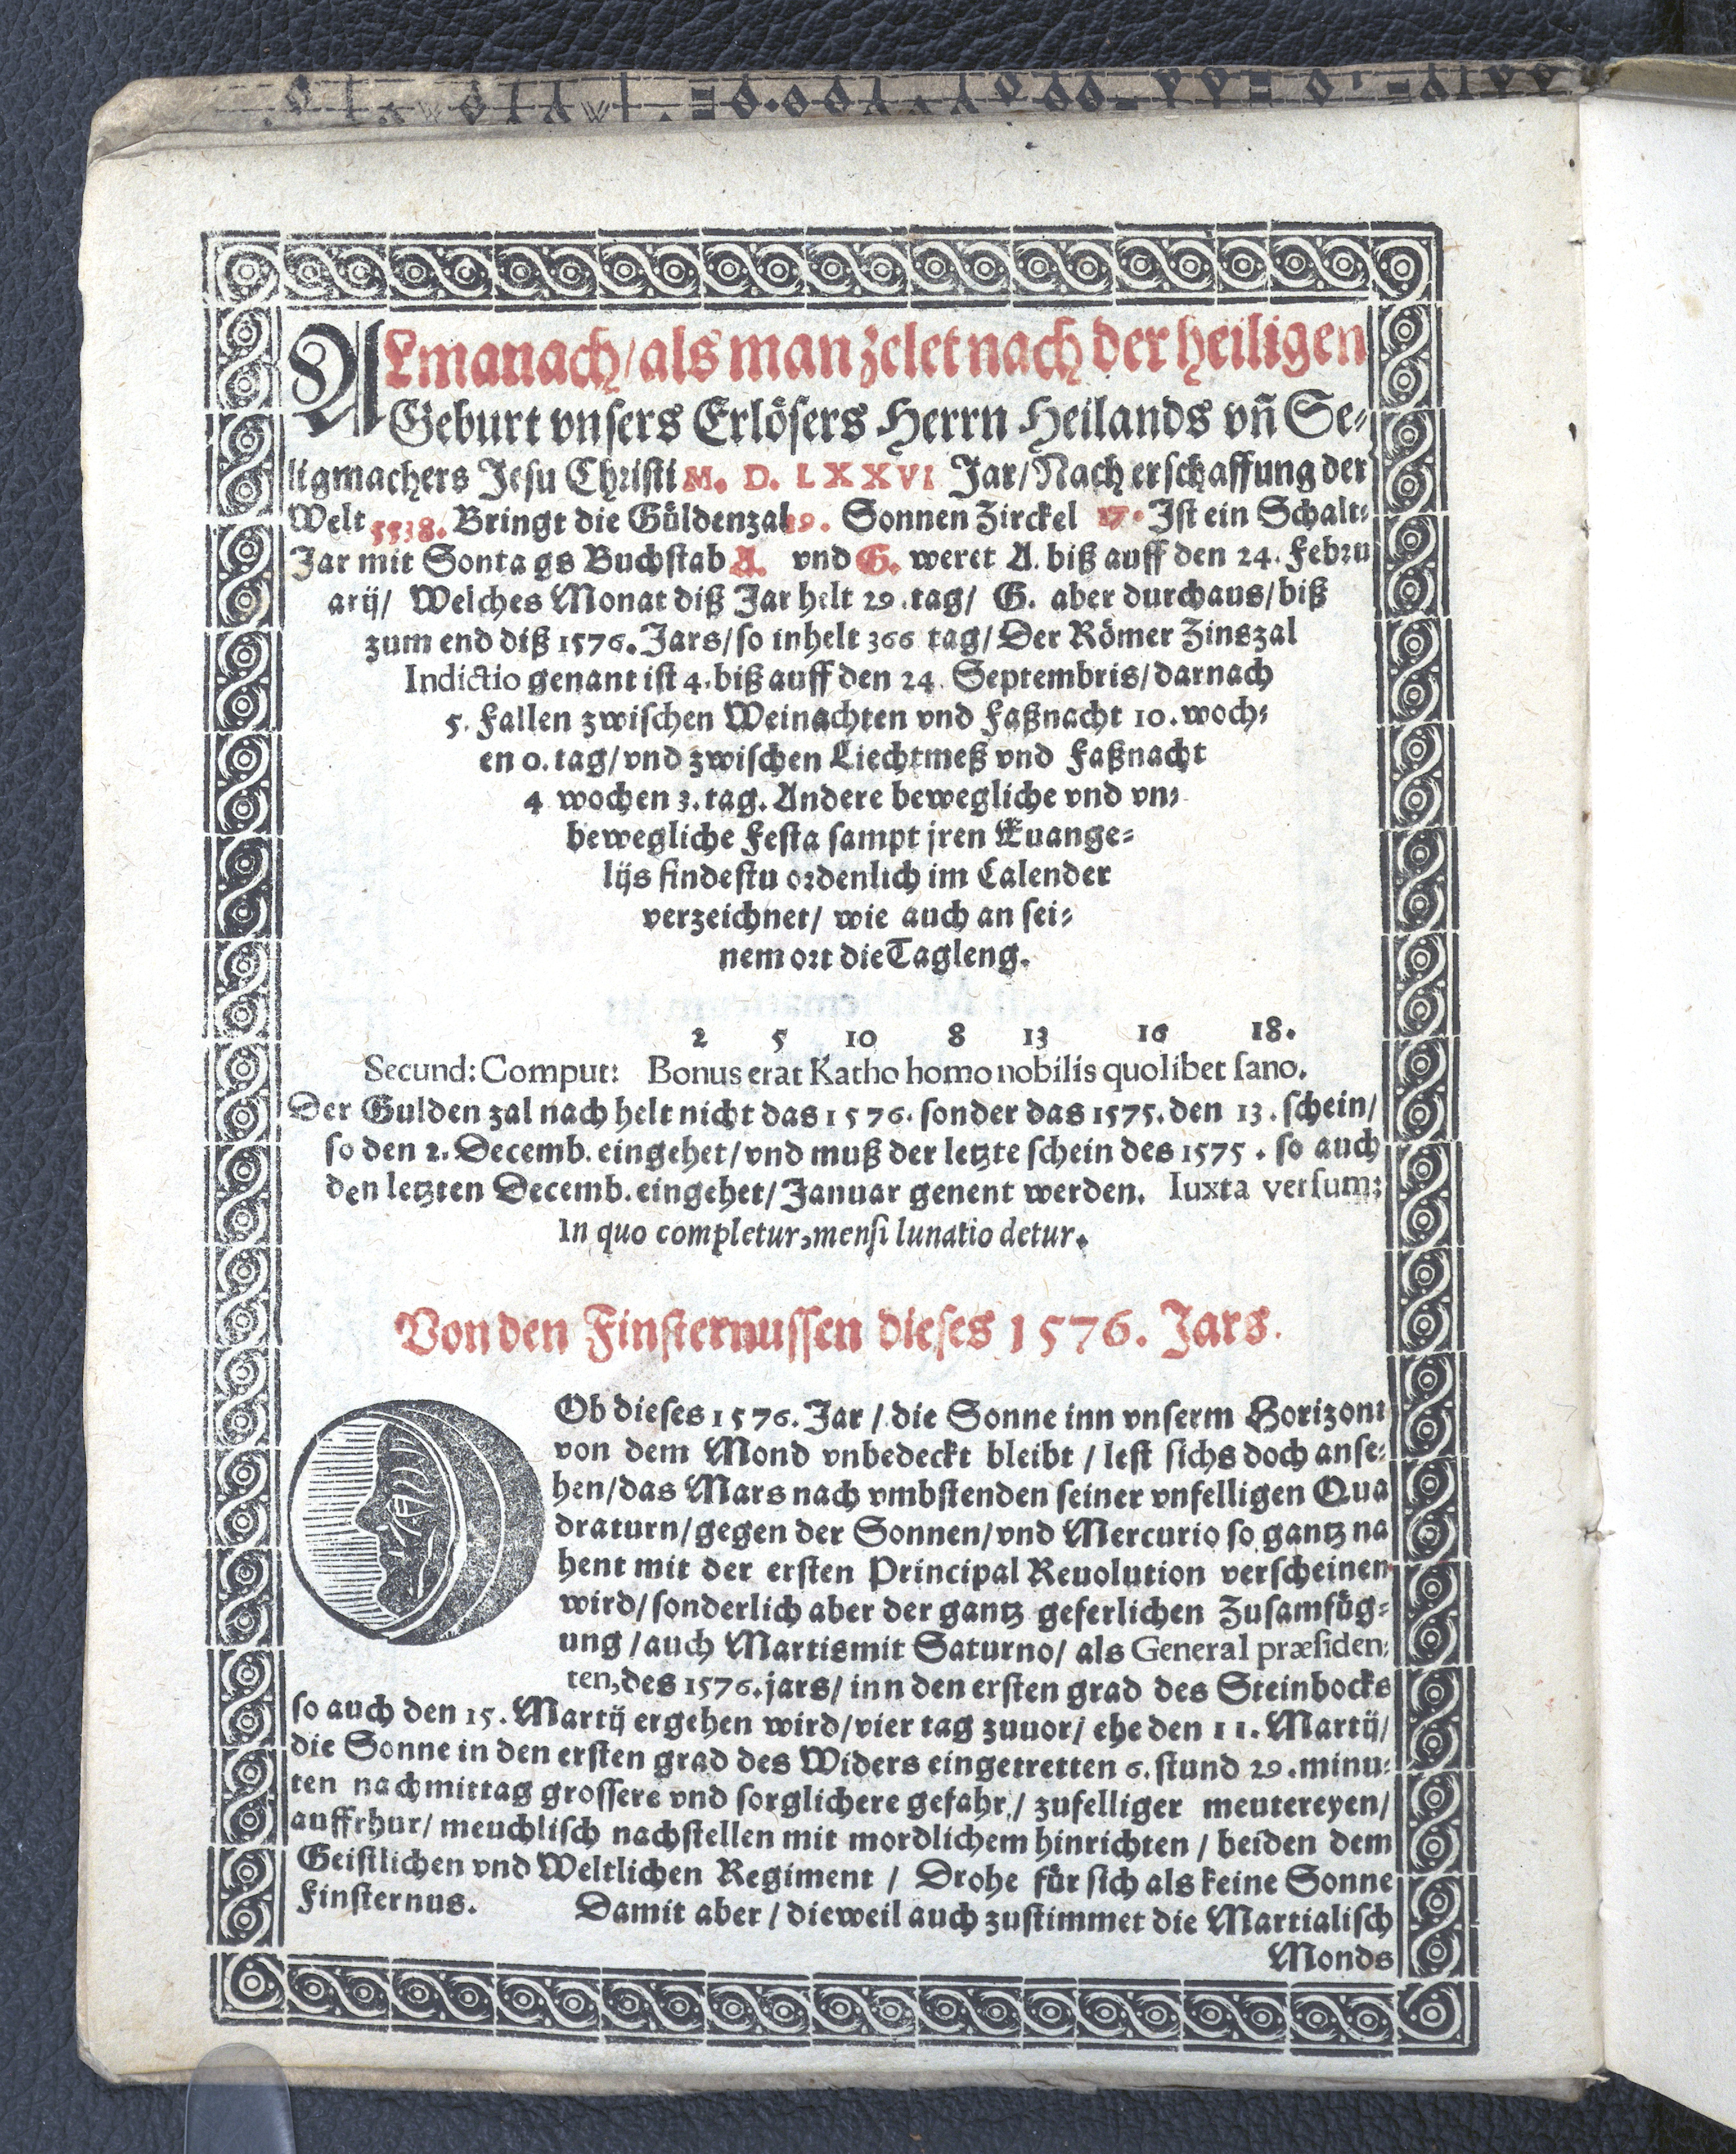 ALmanach/als man zelet nach der heiligen
Geburt vnsers Erlösers Herrn Heilands vñ Se-
ligmachers Jesu Christi M. D. LXXVI Jar/Nach erschaffung der
Welt 5538. Bringt die Güldenzal 19. Sonnen Zirckel 17. Ist ein Schalt-
Jar mit Sontags Buchstab A. vnd G. weret A. biß auff den 24. Febru
arij/ Welches Monat diß Jar helt 29. tag/ G. aber durchaus/biß
zum end diß 1576. Jars/so inhelt 366 tag/Der Römer Zinszal
Indictio genant ist 4. biß auff den 24. Septembris/darnach
5. Fallen zwischen Weinachten vnd Faßnacht 10. woch-
en 0. tag/vnd zwischen Liechtmeß vnd Faßnacht
4 wochen 3. tag. Andere bewegliche vnd vn-
bewegliche Festa sampt jren Euange-
lijs findestu ordenlich im Calender
verzeichnet/ wie auch an sei-
nem ort die Tagleng.
2 5 10 8 13 16 18.
Secund: Comput: Bonus erat Katho homo nobilis quolibet sano.
Der Gulden zal nach helt nicht das 1576. sonder das 1575. den 13. schein/
so den 2. Decemb. eingehet/vnd muß der letzte schein des 1575. so auch
den letzten Decemb. eingehet/Januar genent werden. Iuxta versum:
In quo completur, mensi lunatio detur.
Von den Finsternussen dieses 1576. Jars.
Ob dieses 1576. Jar / die Sonne inn vnserm Horizont
von dem Mond vnbedeckt bleibt / lest sichs doch anse-
hen/das Mars nach vmbstenden seiner vnfelligen Qua
draturn/gegen der Sonnen/vnd Mercurio so gantz na
hent mit der ersten Principal Reuolution verscheinen
wird/sonderlich aber der gantz geferlichen Zusamfüg-
ung /auch Martis mit Saturno/ als General præsiden-
ten, des 1576. jars/ inn den ersten grad des Steinbocks
so auch den 15. Martij ergehen wird/vier tag zuuor/ ehe den 11. Martij/
die Sonne in den ersten grad des Widers eingetretten 6. stund 29. minu-
ten nachmittag grossere vnd sorglichere gefahr/ zufelliger meutereyen/
auffrhur/ meuchlisch nachstellen mit mordlichem hinrichten / beiden dem
Geistlichen vnd Weltlichen Regiment / Drohe für sich als keine Sonne
Finsternus. Damit aber / dieweil auch zustimmet die Martialisch
Monds